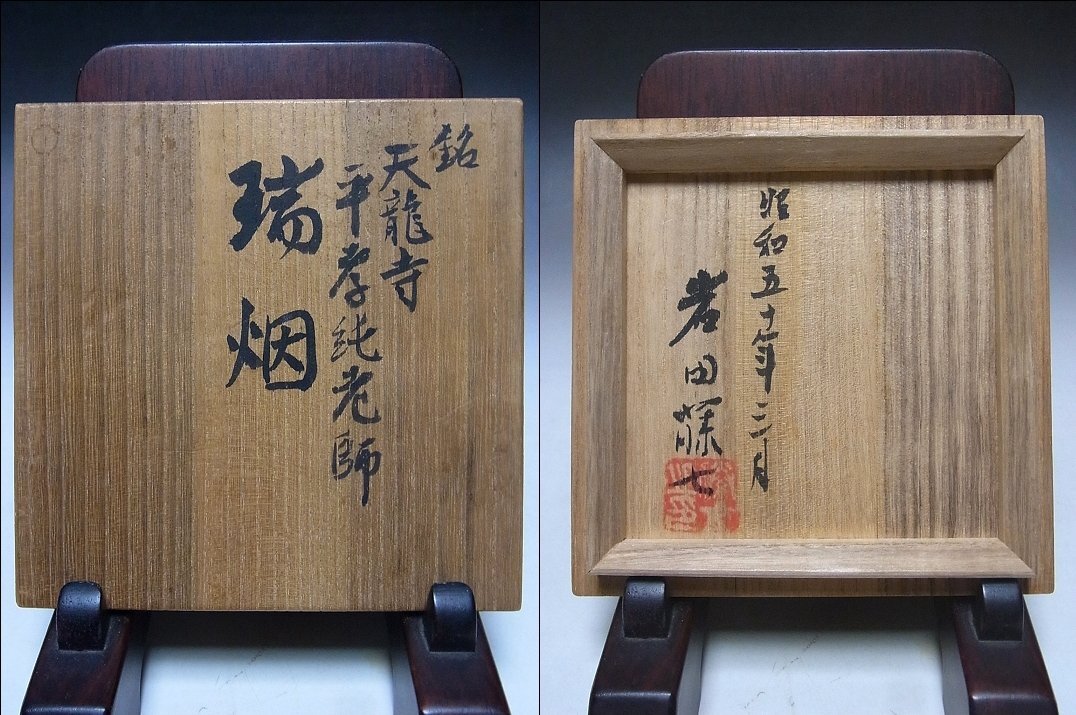 銘
天龍寺
平孝純老師
瑞烟
昭和五十年三月
岩田藤七